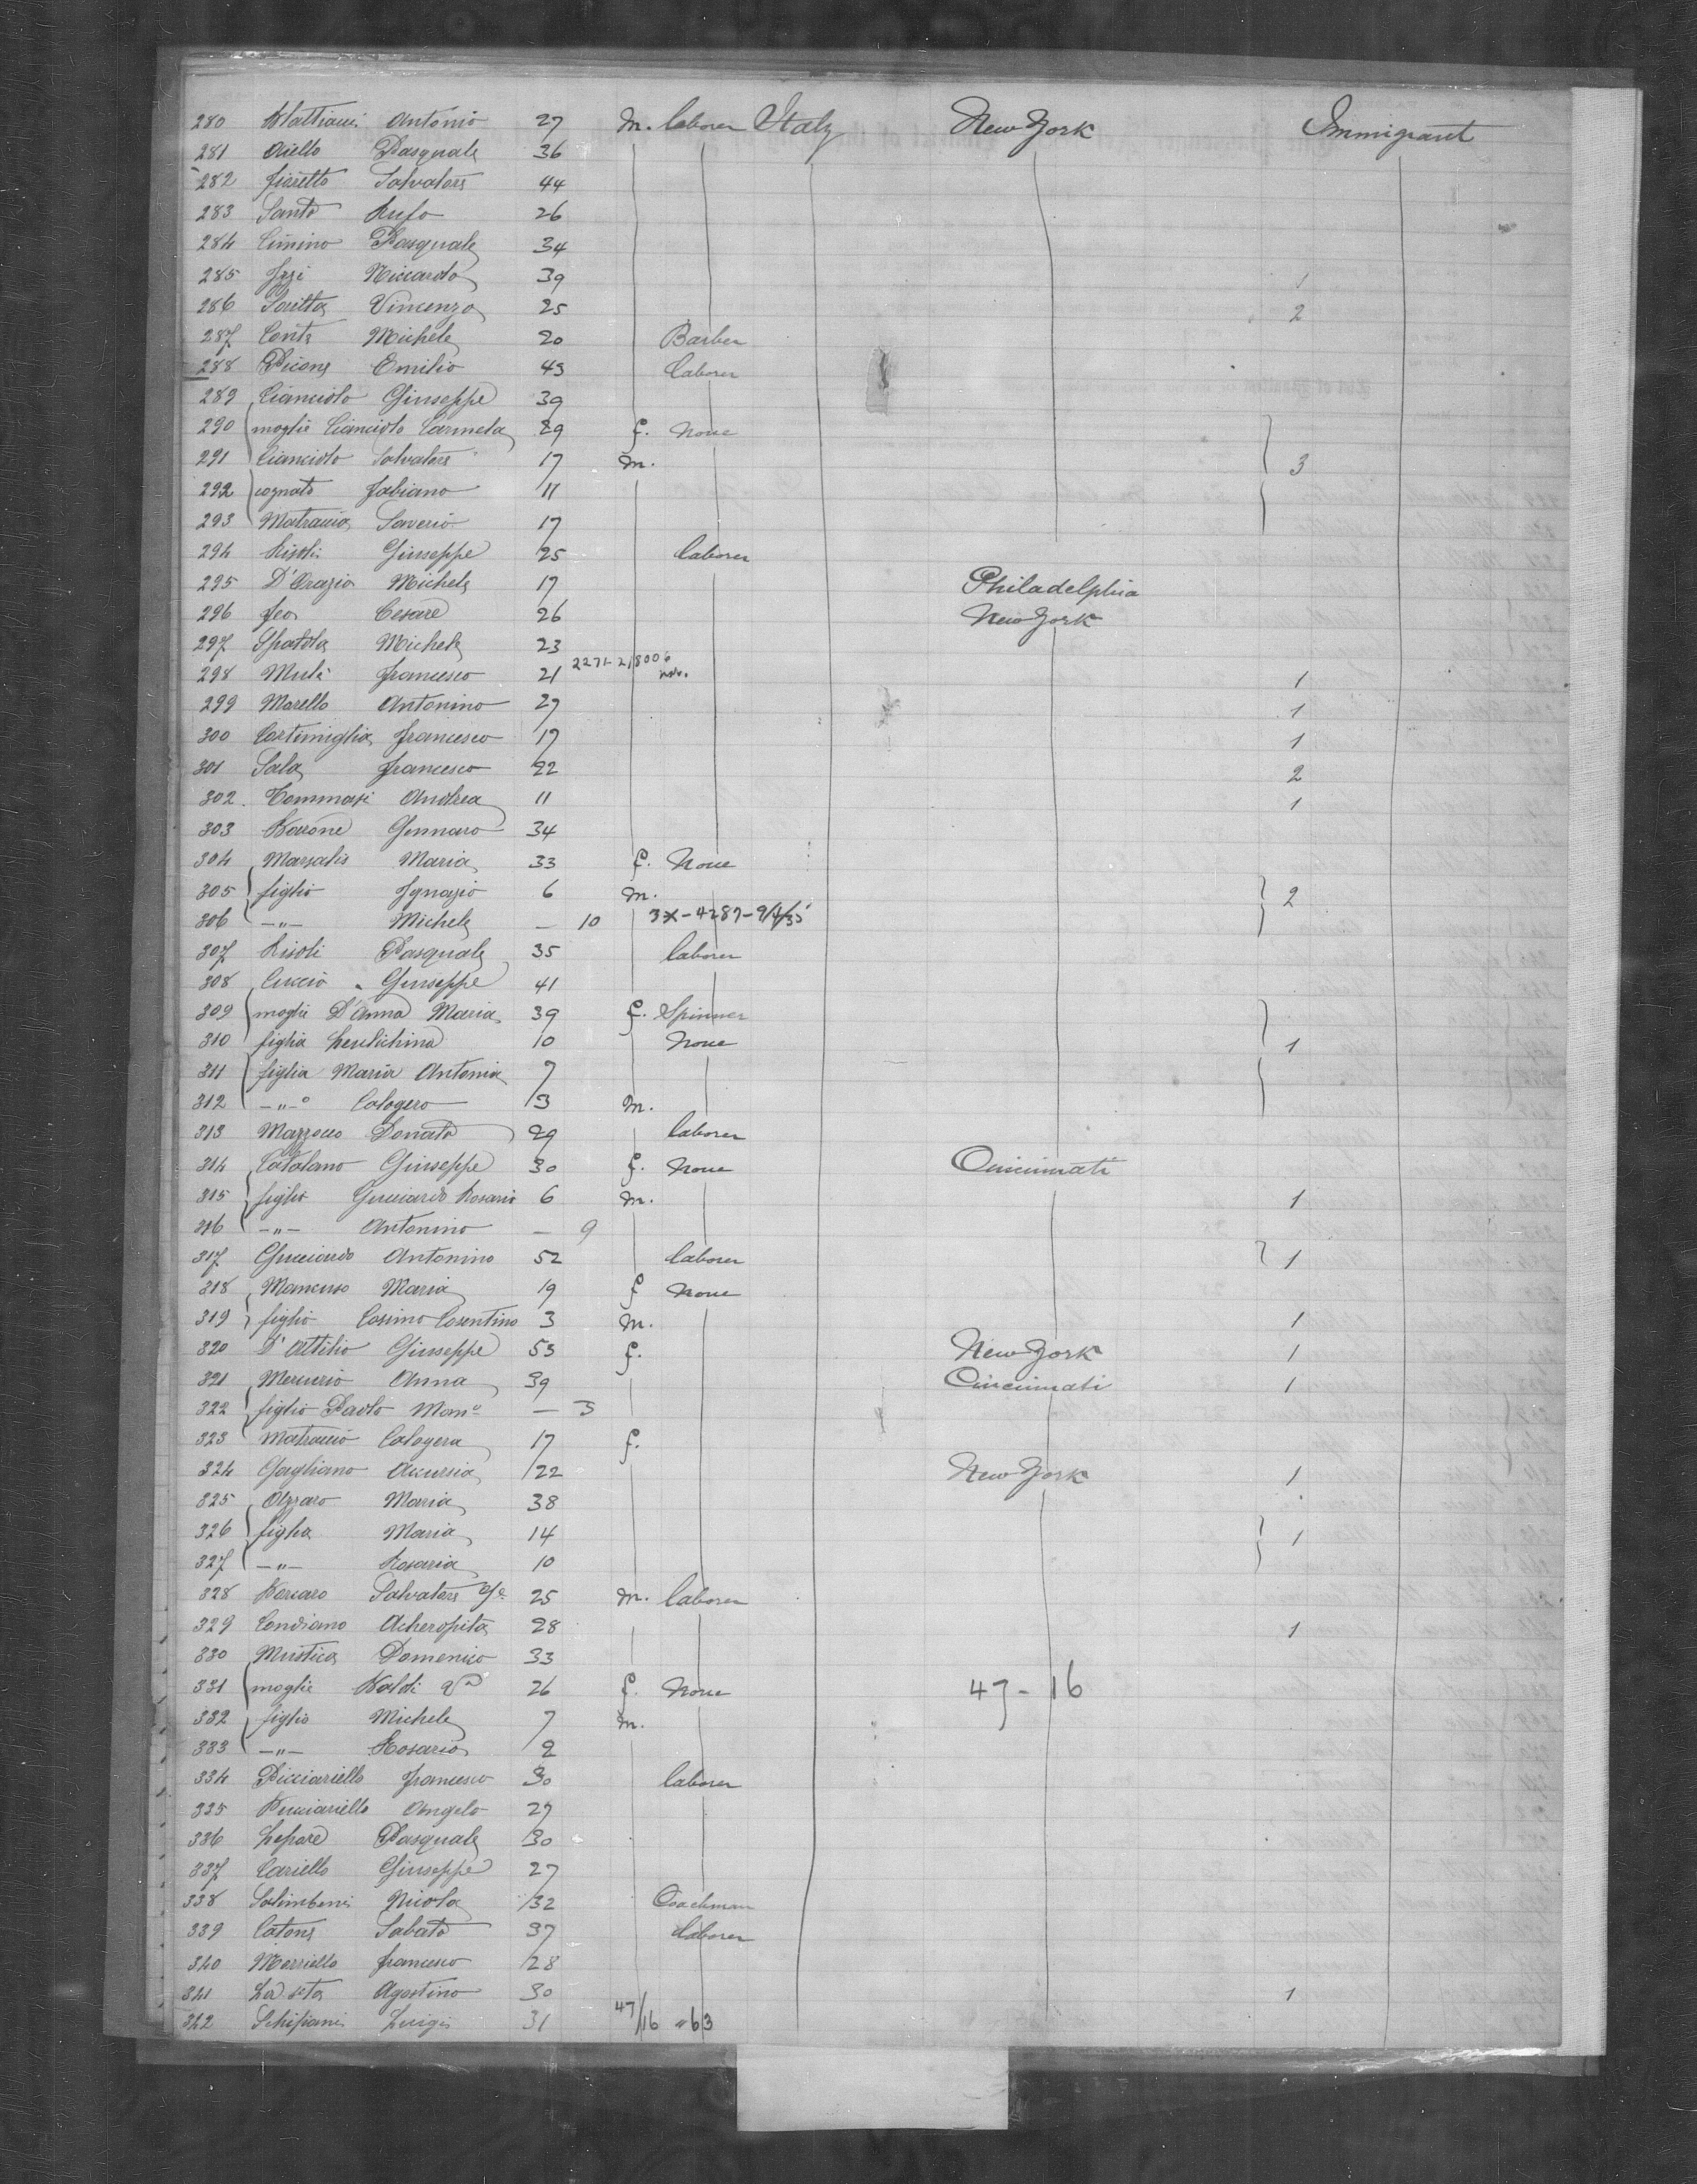 280 Mattiacci Antonio 27 m. laborer Italy New York Immigrant
281 Aiello Pasquale 36
282 Fioretto Salvatore 44
283 Santo Rufo 26
284 Cimino Pasquale 34
285 Izzi Riccardo 39 1
286 Saitta Vincenzo 25 2
287 Conte Michele 20 Barber
288 Picone Emilio 43 laborer
289 Cianciolo Giuseppe 39
290 moglie Cianciolo Carmela 29 f. None
291 Cianciolo Salvatore 17 m. 3
292 cognato Fabiano 11
293 Matraccia Saverio 17
294 Risoli Giuseppe 25 laborer
295 D'Orazio Michele 17 Philadelphia
296 Feo Cesare 26 New York
297 Spatola Michele 23
298 Mulè Francesco 21 2271-218006 1
299 Morello Antonino 27 1
300 Cortimiglia Francesco 17 1
301 Sala Francesco 22 2
302. Tommasi Andrea 11 1
303 Barone Gennaro 34
304 Marsalis Maria 33 f. None
305 figlio Ignazio 6 m. 2
306 —"— Michele — 10 3X-4287-9/4/35
307 Risoli Pasquale 35 laborer
308 Cuccio Giuseppe 41
309 moglie D'Anna Maria 39 f. Spinner
310 figlia 10 None 1
311 figlia Maria Antonia 7
312 —"— Calogero 3 m.
313 Mazzocco Donato 29 laborer
314 Catalano Giuseppe 30 f. None Cincinnati
315 figlio Gucciardo Rosario 6 m. 1
316 —"— Antonino — 9
317 Gucciardo Antonino 52 laborer 1
318 Mancuso Maria 19 f None
319 figlio Cosimo Cosentino 3 m. 1
320 D'Attilio Giuseppe 53 f. New York 1
321 Mercurio Anna 39 Cincinnati 1
322 figlio Paolo — 3
323 Matraccio Calogera 17 f.
324 Gagliano Accursia 22 New York 1
325 Azzaro Maria 38
326 figlia Maria 14 1
327 —"— Rosaria 10
328 Porcaro Salvatore 25 m. laborer
329 Condiano Acheropita 28 1
330 Mustica Domenico 33
331 moglie 26 f. None 47-16
332 figlio Michele 7 m.
333 —"— Rosario 2
334 Picciariello Francesco 30 laborer
335 Picciariello Angelo 27
336 Lepore Pasquale 30
337 Cariello Giuseppe 27
338 Salimbeni Nicola 32 Coachman
339 Catone Sabato 37 laborer
340 Morriello Francesco 28
341 Agostino 30 1
342 Schifani Luigi 31 47/16 "63